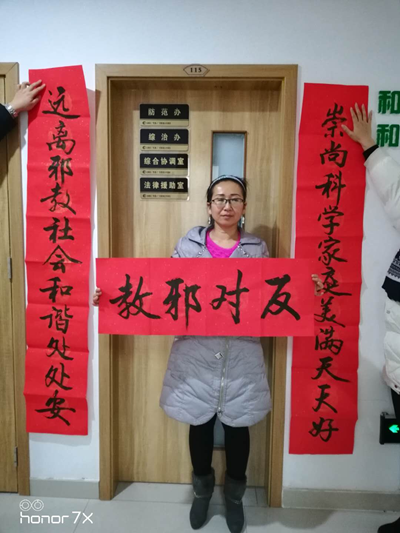 115
防范办
综治办
综合协调室
法律援助室
崇尚科学家庭美满天天好
远离邪教社会和谐处处安
反对邪教
和
和
honor 7X